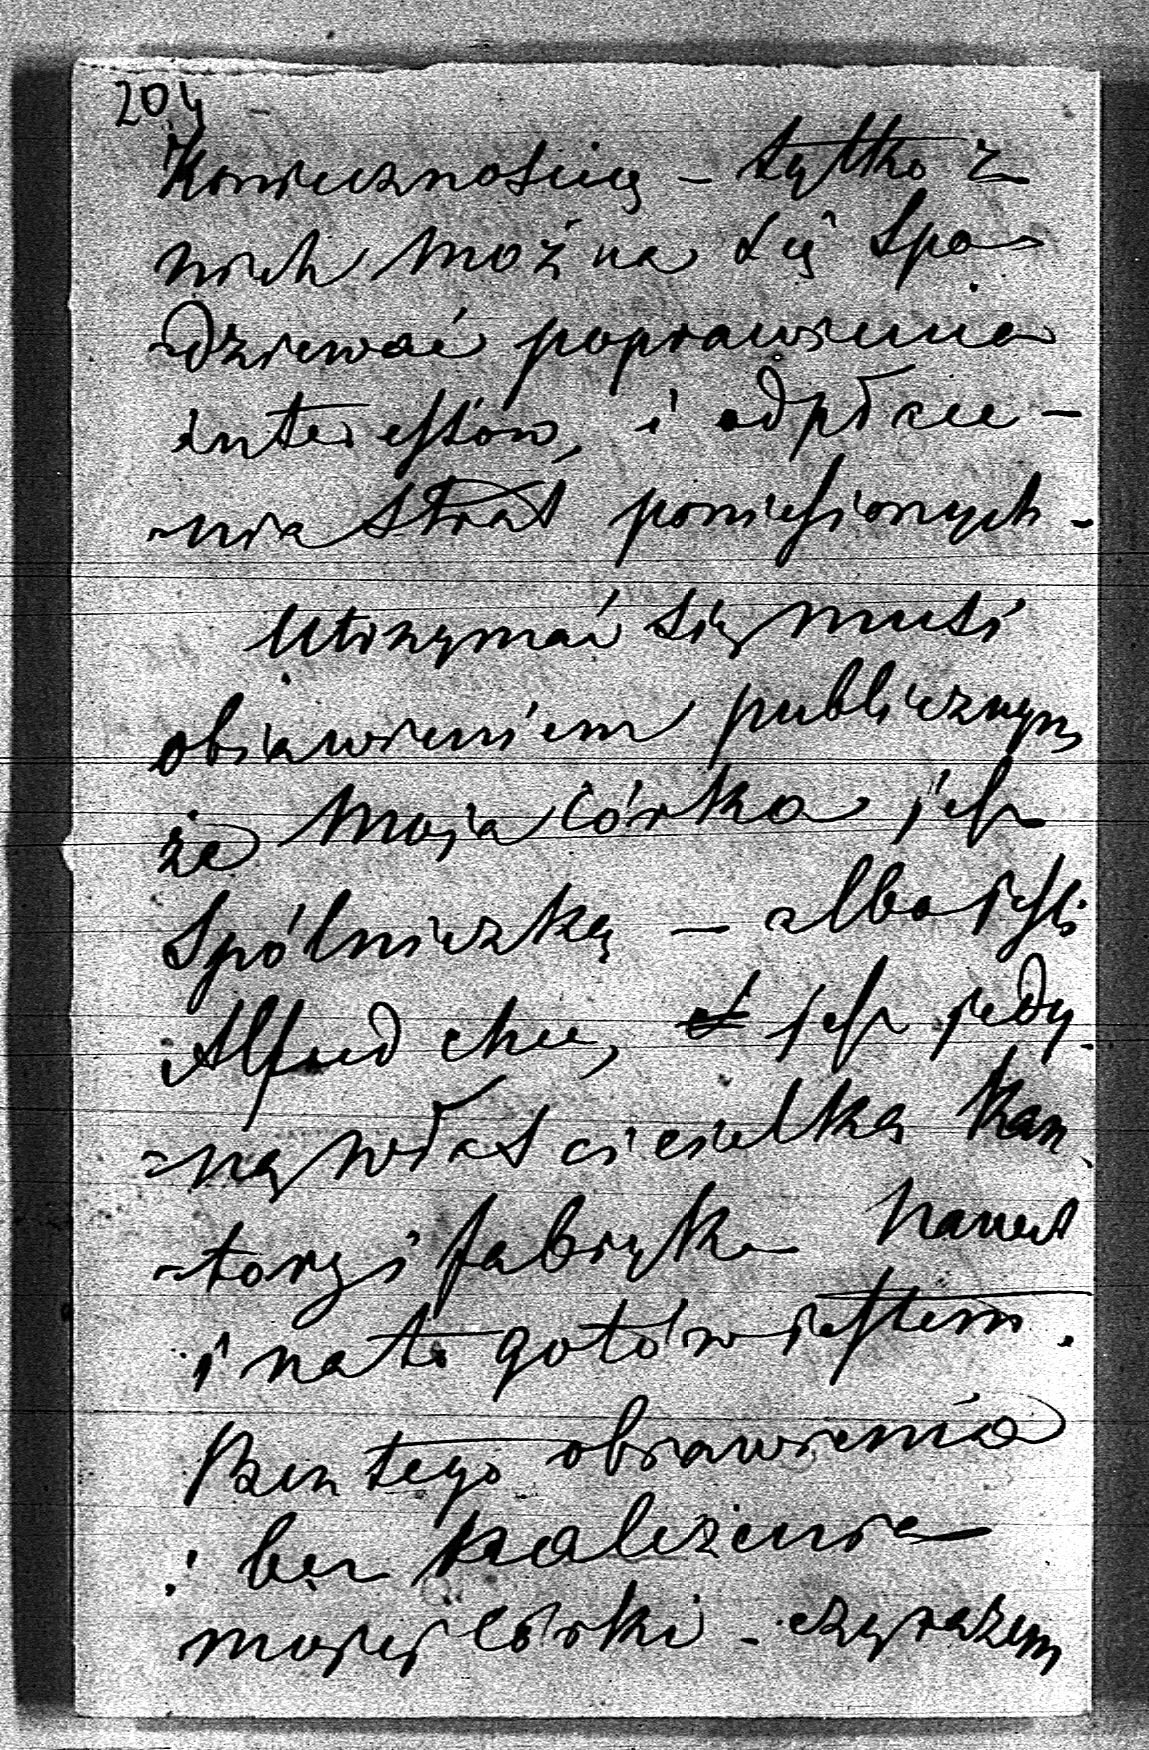 204
Koniecznością – tylko z
nich można się spo-
-dziewać poprawienia
interessów, i odpłace-
-nia strat poniesionych –
Utrzymać się musi
obiawieniem publicznym
że moja córka jest
Spólniczką – albo jeśli
Alfred chce, jest jedy-
-ną właścicielką kan-
-tory i fabryk nawet
i na to gotów jestem.
Bez tego obiawienia
i bez należenia
mojej córki – czy razem